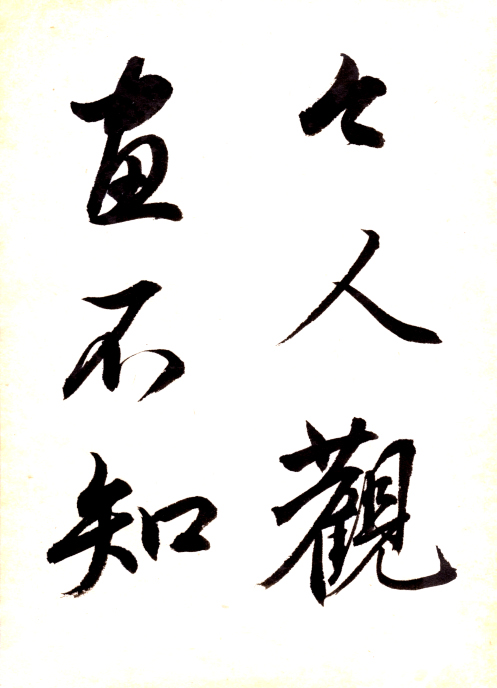 々人觀
直不知